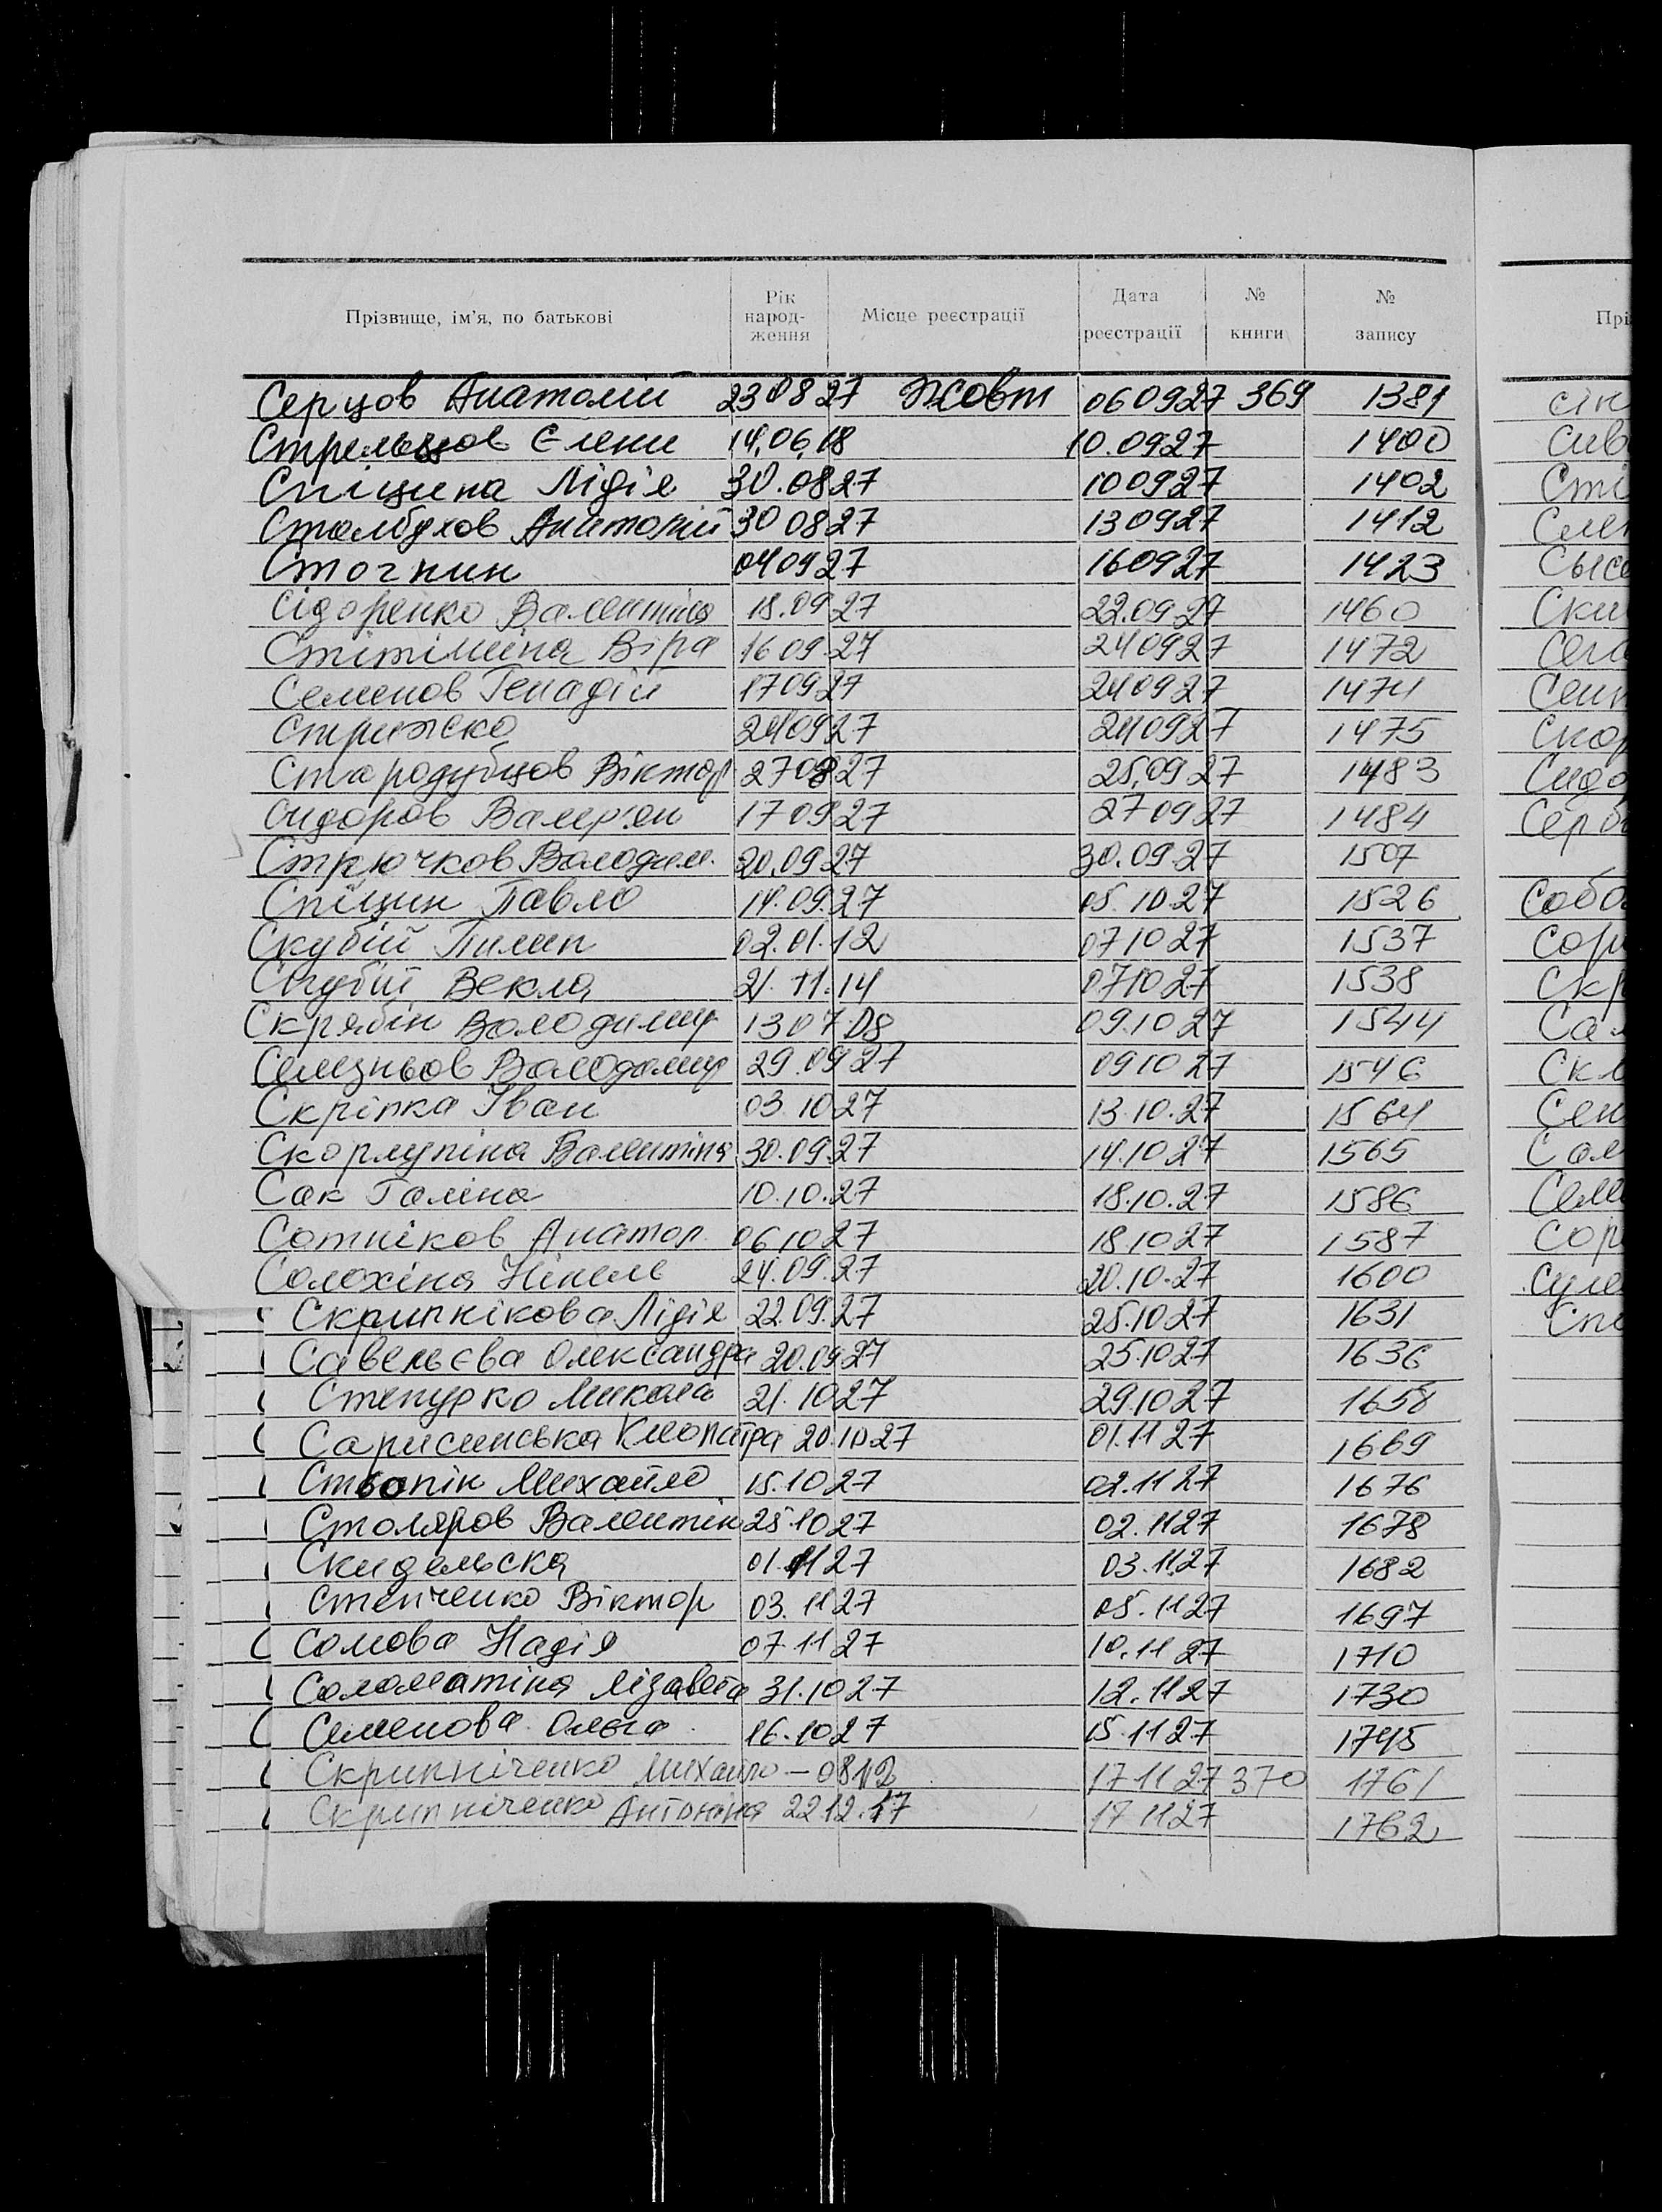 Прізвище, ім'я, по батькові Рік народ- ження Місце реєстрації Дата реєстрації № книги № запису
Серцов Анатолій 23 08 27 Жовт 06 09 27 369 1381
Стрельцов Єлени 14.06.18 10.09 27 1400
Спіцина Лідія 30.08 27 10 09 27 1402
Столбухов Анатолій 30 08 27 13 09 27 1412
Сточнин 04 09 27 16 09 27 1423
Сідоренко Валентіна 18.09 27 22.09.27 1460
Стітіміна Віра 16 09 27 24 09 27 1472
Семенов Генадій 17 09 27 24 09 27 1474
Стрижско 24 09 27 24 09 27 1475
Стародубцов Віктор 27 08 27 25.09 27 1483
Сидоров Валер'ян 17 09 27 27 09 27 1484
Стрючков Володим. 20.09.27 30.09.27 1507
Спіцин Павло 14.09.27 05.10.27 1526
Скубій Пилип 02.01.12 07 10 27 1537
Скубій Векла 21.11.14 07 10 27 1538
Скрябін Володимир 13 07 08 09.10 27 1544
Селезньов Володомир 29.09 27 09 10 27 1546
Скріпка Іван 03 10 27 13.10.27 1564
Скорлупіна Валентіна 30.09.27 14.10 27 1565
Сак Галіна 10.10.27 18.10.27 1586
Сотніков Анатол. 06 10 27 18.10 27 1587
Солохіна Нінель 24.09.27 20.10.27 1600
Скрипнікова Лідія 22.09.27 25.10 27 1631
Савельєва Олександра 20.09 27 25.10 27 1636
Степурко Микола 21.10 27 29.10 27 1658
Сарисинська Клеопатра 20.10 27 01.11 27 1669
Ствопік Михайло 15.10 27 02.11 27 1676
Столяров Валентін 25.10 27 02.11 27 1678
Скидельска 01.11 27 03.11.27 1682
Степченко Віктор 03.11 27 05.11 27 1697
Сомова Надія 07.11 27 10.11 27 1710
Соломатіна Лізавета 31.10 27 12.11 27 1730
Семенова Ольга 16.10 27 15.11 27 1745
Скрипніченко Михайло — 08 12 17 11 27 370 1761
Скрипніченко Антоніна 22 12.17 17 11 27 1762